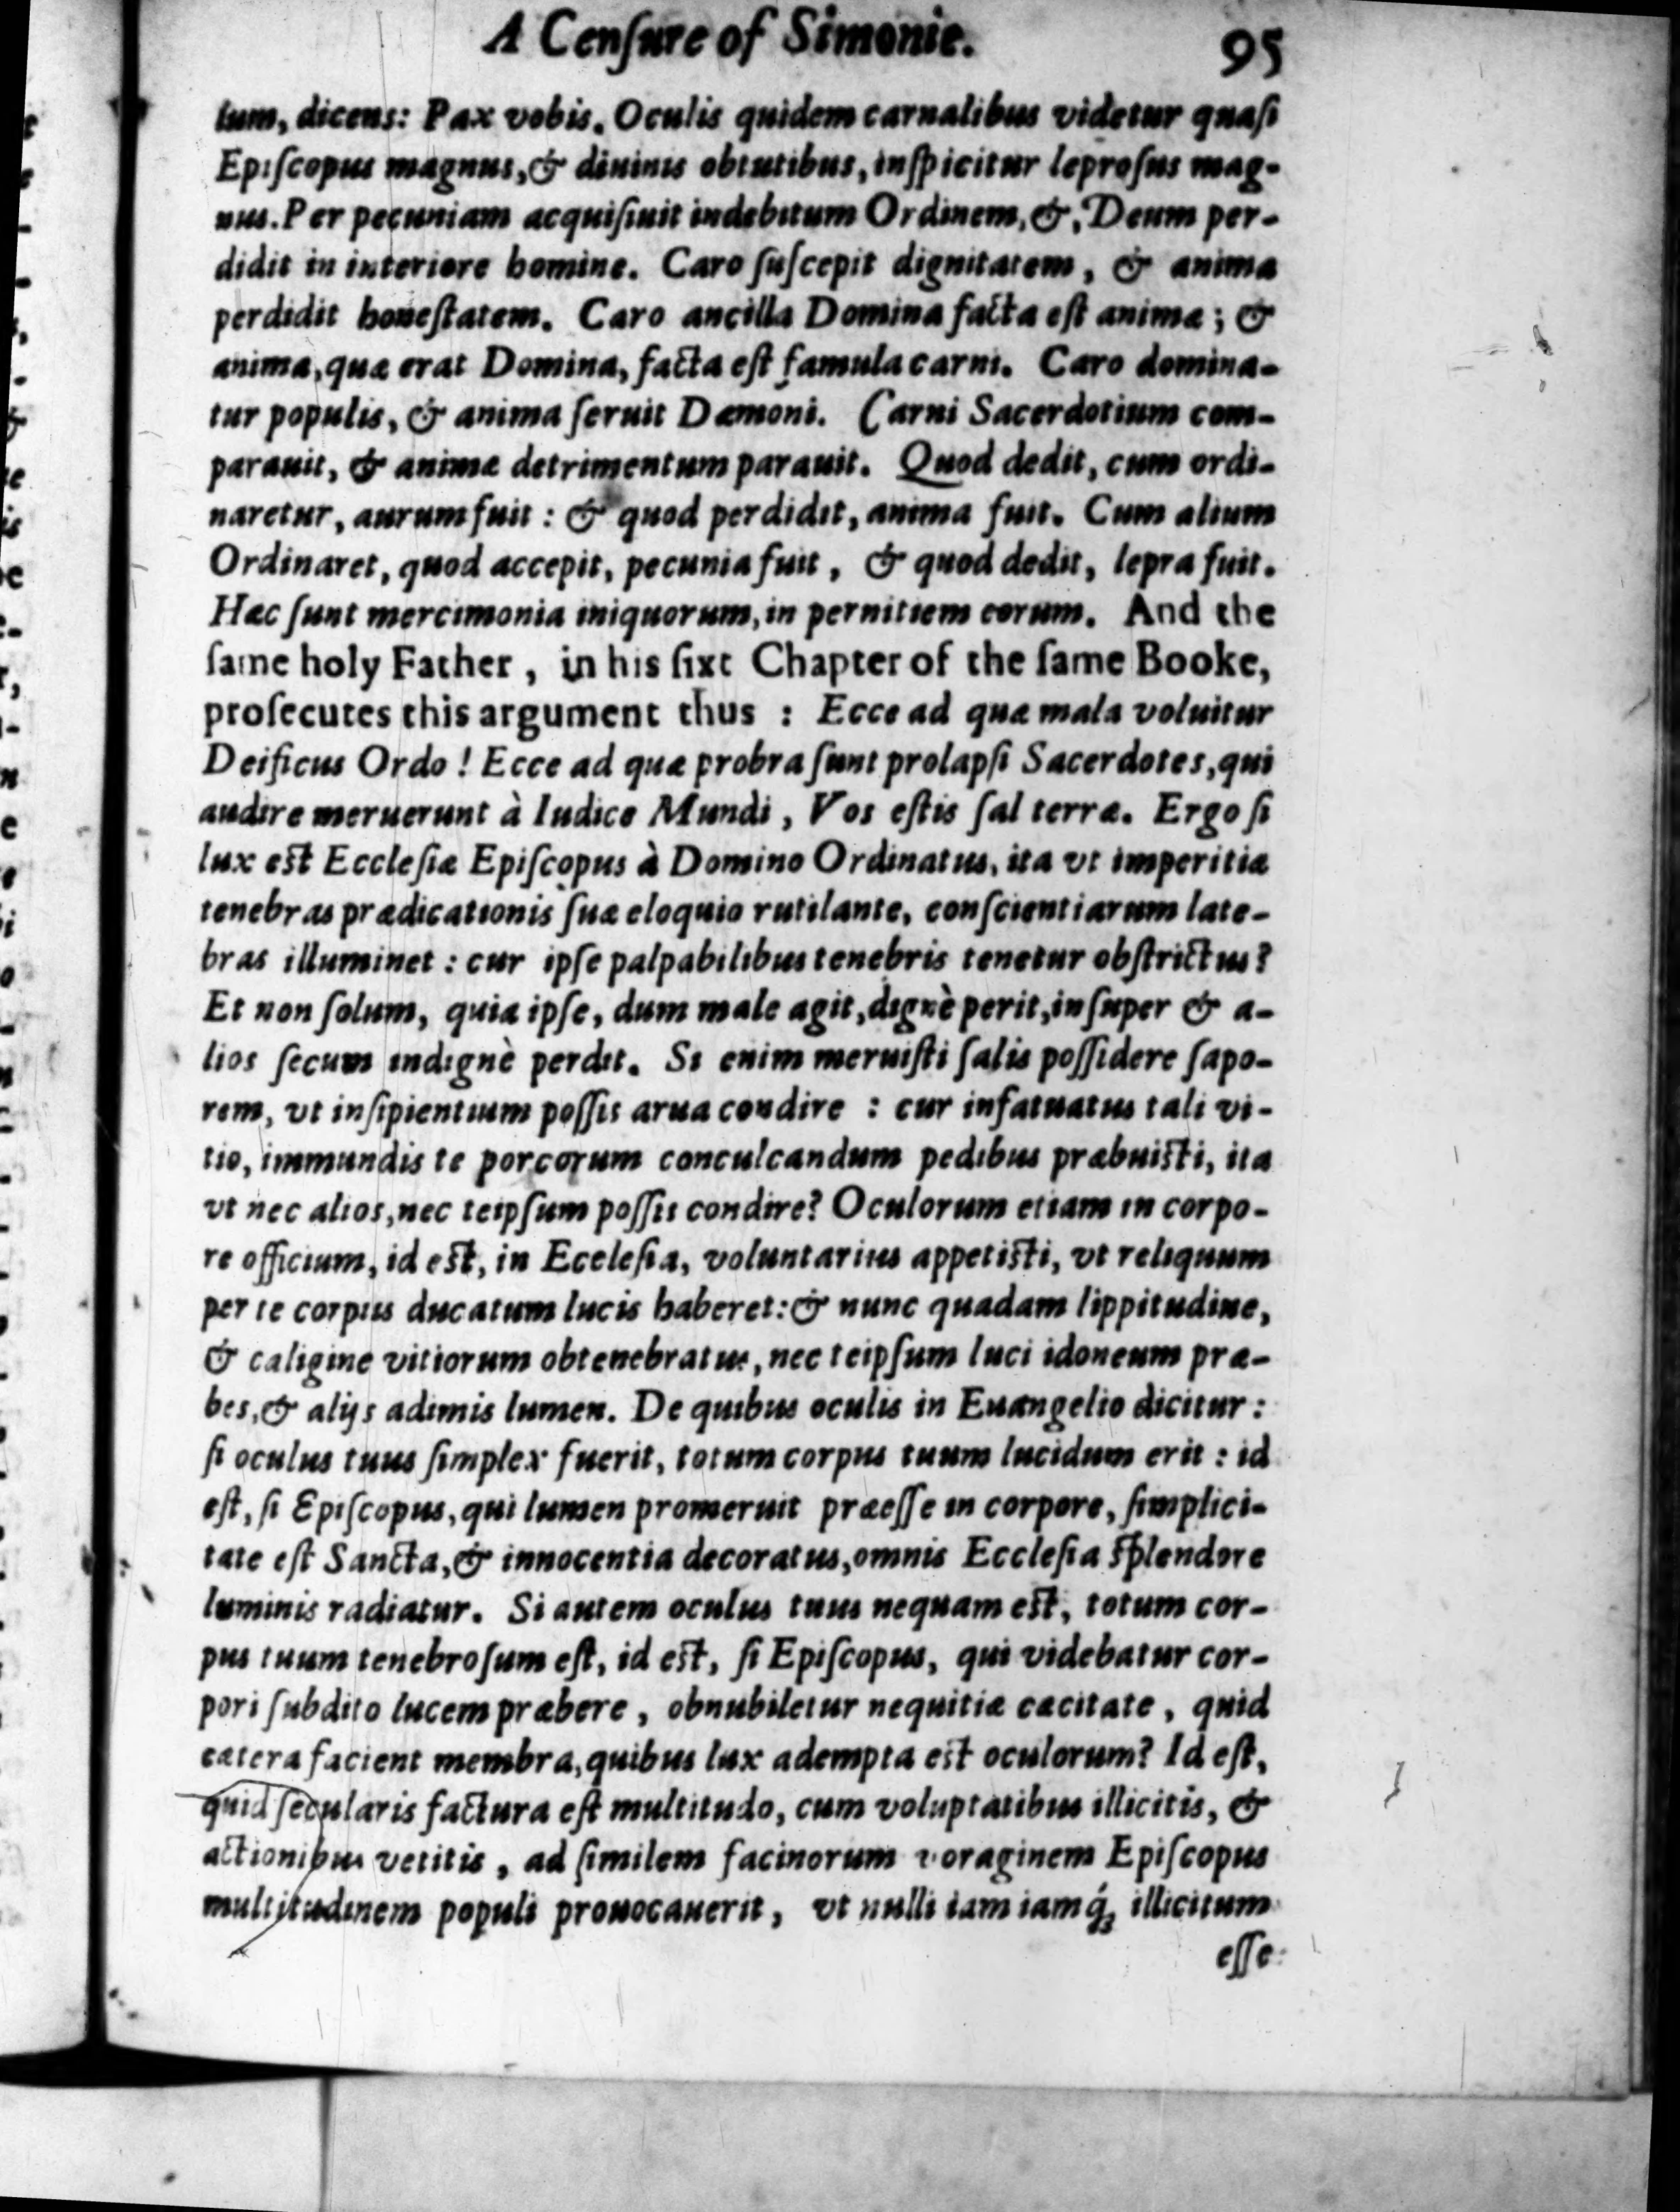 A Cenſure of Simonie. 95
lum, dicens: Pax vobis. Oculis quidem carnalibus videtur quaſi
Epiſcopus magnus, & diuinis obtutibus, inſpicitur leproſus mag-
nus. Per pecuniam acquiſiuit indebitum Ordinem, &, Deum per-
didit in interiore homine. Caro ſuſcepit dignitatem, & anima
perdidit honeſtatem. Caro ancilla Domina facta eſt animæ; &
anima, quæ erat Domina, facta eſt famula carni. Caro domina-
tur populis, & anima ſeruit Dæmoni. Carni Sacerdotium com-
parauit, & animæ detrimentum parauit. Quod dedit, cum ordi-
naretur, aurum fuit: & quod perdidit, anima fuit. Cum alium
Ordinaret, quod accepit, pecunia fuit, & quod dedit, lepra fuit.
Hæc ſunt mercimonia iniquorum, in pernitiem eorum. And the
ſame holy Father, in his ſixt Chapter of the ſame Booke,
proſecutes this argument thus: Ecce ad quæ mala voluitur
Deificus Ordo! Ecce ad quæ probra ſunt prolapſi Sacerdotes, qui
audire meruerunt à Iudice Mundi, Vos eſtis ſal terræ. Ergo ſi
lux eſt Eccleſiæ Epiſcopus à Domino Ordinatus, ita vt imperitiæ
tenebras prædicationis ſuæ eloquio rutilante, conſcientiarum late-
bras illuminet: cur ipſe palpabilibus tenebris tenetur obſtrictus?
Et non ſolum, quia ipſe, dum male agit, dignè perit, inſuper & a-
lios ſecum indignè perdit. Si enim meruiſti ſalis poſſidere ſapo-
rem, vt inſipientium poſſis arua condire: cur infatuatus tali vi-
tio, immundis te porcorum conculcandum pedibus præbuiſti, ita
vt nec alios, nec teipſum poſſis condire? Oculorum etiam in corpo-
re officium, id eſt, in Eceleſia, voluntarius appetiſti, vt reliquum
per te corpus ducatum lucis haberet: & nunc quadam lippitudine,
& caligine vitiorum obtenebratus, nec teipſum luci idoneum præ-
bes, & alijs adimis lumen. De quibus oculis in Euangelio dicitur:
ſi oculus tuus ſimplex fuerit, totum corpus tuum lucidum erit: id
eſt, ſi Epiſcopus, qui lumen promeruit præeſſe in corpore, ſimplici-
tate eſt Sancta, & innocentia decoratus, omnis Eccleſia ſplendore
luminis radiatur. Si autem oculus tuus nequam eſt, totum cor-
pus tuum tenebroſum eſt, id eſt, ſi Epiſcopus, qui videbatur cor-
pori ſubdito lucem præbere, obnubiletur nequitiæ cæcitate, quid
cætera facient membra, quibus lux adempta eſt oculorum? Id eſt,
quid ſecularis factura eſt multitudo, cum voluptatibus illicitis, &
actionibus vetitis, ad ſimilem facinorum voraginem Epiſcopus
multitudinem populi prouocauerit, vt nulli iam iamq́; illicitum
eſſe